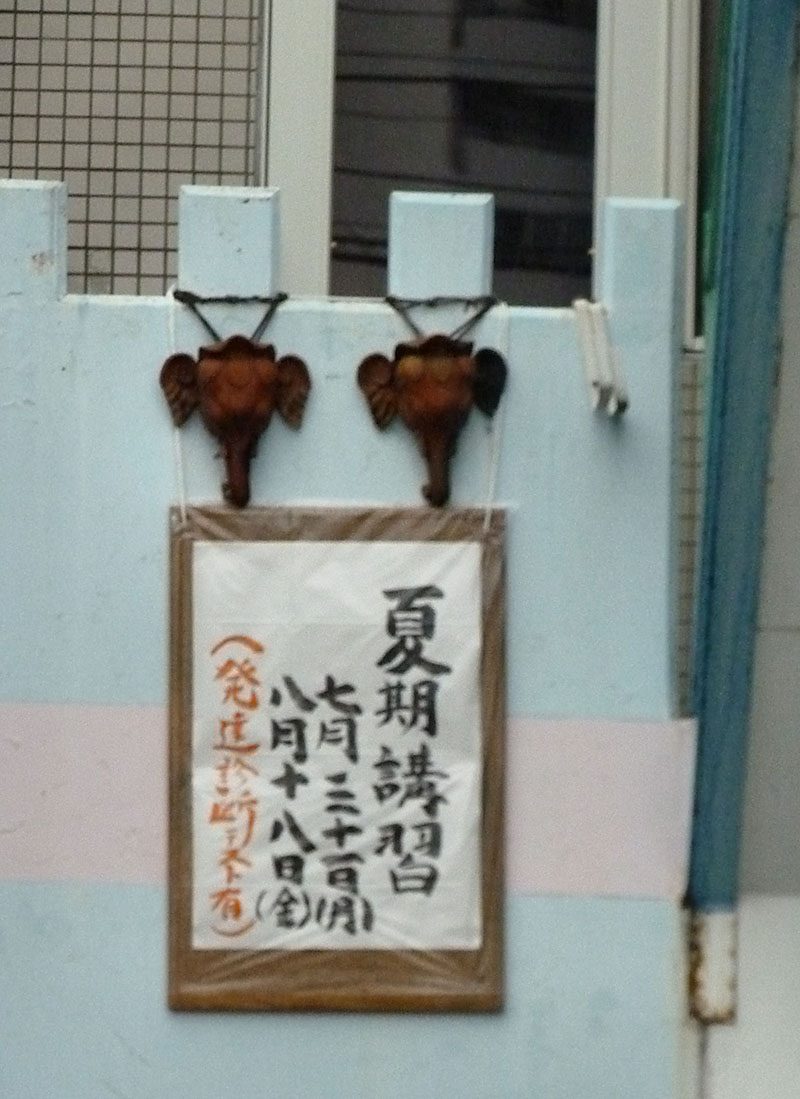 夏期講習
七月三十一日(月)
八月十八日(金)
(発達診断テスト有)